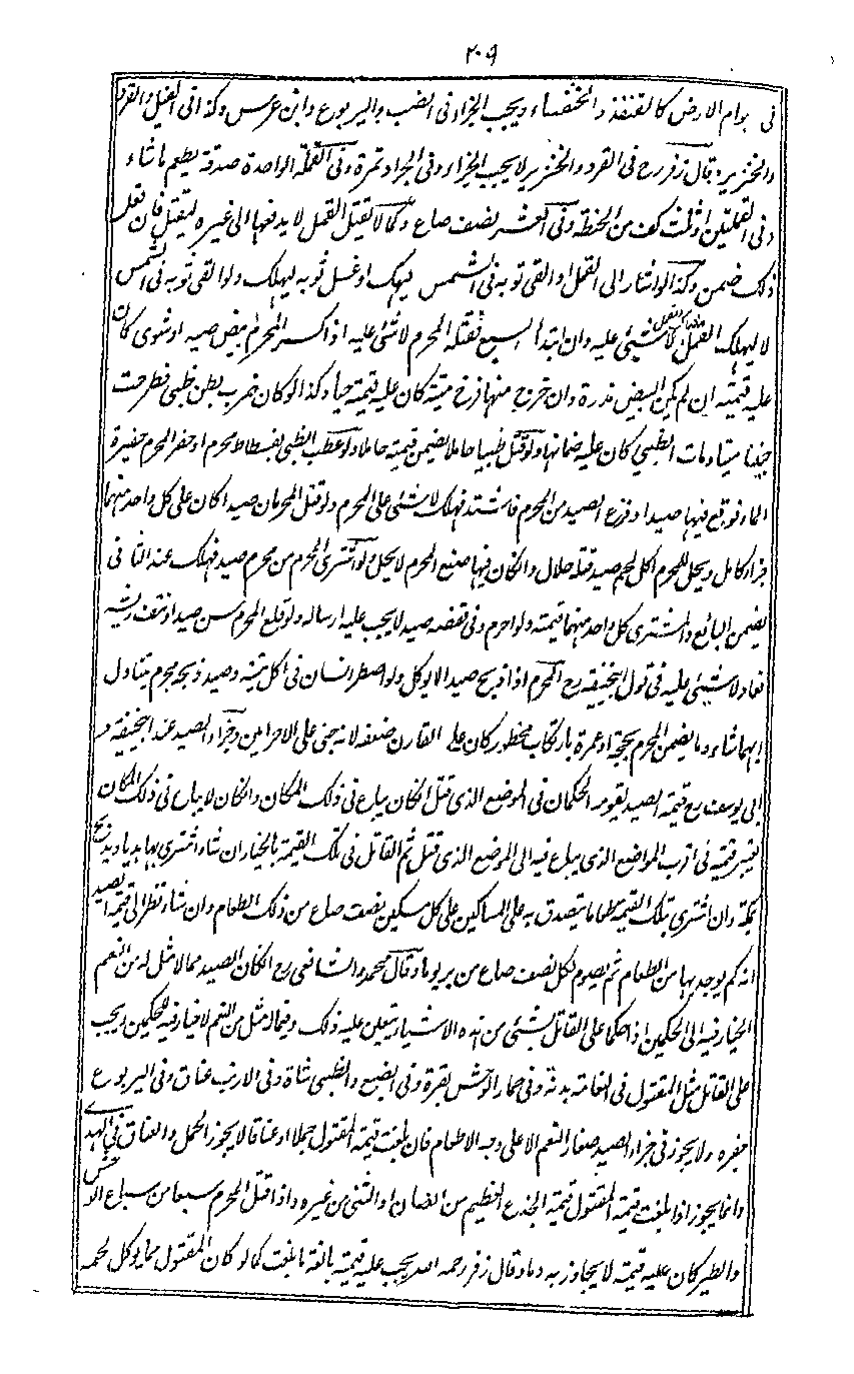 ٢٠٩
فى هوام الارض كالقنفذ والخنفساء ويجب الجزاء فى الضب واليربوع وابن عرس وكذا فى الفيل والقرد
والخنزير وقال زفر رح فى القرد والخنزير لا يجب الجزاء وفى الجراد تمرة وفى القملة الواحدة صدقة يطعم ما شاء
وفى القملتين او ثلث كف من الحنطة وفى العشر نصف صاع وكما لا يقتل القمل لا يدفعها الى غيره ليقتل فان فعل
ذلك ضمن وكذا لو اشار الى القمل او القى ثوبه فى الشمس ليهلك او غسل ثوبه ليهلك ولو القى ثوبه فى الشمس
لا ليهلك القمل لا شيئى عليه وان ابتدأ السبع فقتله المحرم لا شئ عليه اذا كسر المحرم بيض صيد او شوى كان
عليه قيمته ان لم يكن البيض مذرة وان خرج منها فرخ ميتة كان عليه قيمته حيا وكذا لو كان ضرب بطن ظبى فطرحت
جنينا ميتا ومات الظبى كان عليه ضمانها ولو قتل ظبيا حاملا يضمن قيمته حاملا ولو عطب الظبى بفسطاط محرم او حفر المحرم حفيرة
الماء فوقع فيها صيد او فزع الصيد من المحرم فاشتد فهلك لا شئى على المحرم ولو قتل المحرمان صيدا كان على كل واحد منهما
جزاء كامل ويحل للمحرم اكل لحم صيد قتله حلال وان كان فيها صنيع المحرم لا يحل ولو اشترى المحرم من محرم صيد فهلك عنه الثانى
يضمن البائع والمشترى كل واحد منهما قيمته ولو احرم وفى قفصه صيد لا يجب عليه ارساله ولو قلع المحرم سن صيد او نتف ريشه
فعاد لا شيئى عليه فى قول ابيحنيفة رح المحرم اذا ذبح صيدا لا يوكل ولو اضطر انسان فى اكل ميتة وصيد ذبحه محرم يتناول
ايهما شاء وما يضمن المحرم بحجة او عمرة بارتكاب محظور كان على القارن ضعفه لانه جنى على الاحرامين وجزاء الصيد عند ابيحنيفة و
ابى يوسف رح قيمة الصيد يقومه الحكمان فى الموضع الذى قتل ان كان يباع فى ذلك المكان وان كان لا يباع فى ذلك المكان
يعتبر قيمته فى اقرب المواضع الذى يباع فيه الى الموضع الذى قتل ثم القاتل فى تلك القيمة بالخيار ان شاء اشترى بها هديا ويذبح
بمكة وان اشترى بتلك القيمة طعاما يتصدق به على المساكين على كل مسكين نصف صاع من ذلك الطعام وان شاء نظر الى قيمة الصيد
انه كم يوجد بها من الطعام ثم يصوم لكل نصف صاع من بر يوما وقال محمد والشافعى رح ان كان الصيد مما لا مثل له من النعم
الخيار فيه الى الحكمين اذا حكما على القاتل بشيئى من هذه الاشياء يتعين عليه ذلك وفيما له مثل من النعم لا خيار فيه للحكمين ويجب
على القاتل مثل المقتول فى النعامة بدنة وفى حمار الوحش بقرة وفى الضبع والظبى شاة وفى الارنب عناق وفى اليربوع
جفره ولا يجوز فى جزاء الصيد صغار النعم الا على وجه الاطعام فان بلغت قيمة المقتول حملا او عناقا لا يجوز الحمل والعناق فى الهدى
وانما يجوز اذا بلغت قيمة المقتول قيمة الجذع العظيم من الضان او الثنى من غيره واذا قتل المحرم سبعا من سباع الوحش
والطير كان عليه قيمته لا يجاوز به دما وقال زفر رحمه الله يجب عليه قيمته بالغة ما بلغت كما لو كان المقتول مما يوكل لحمه